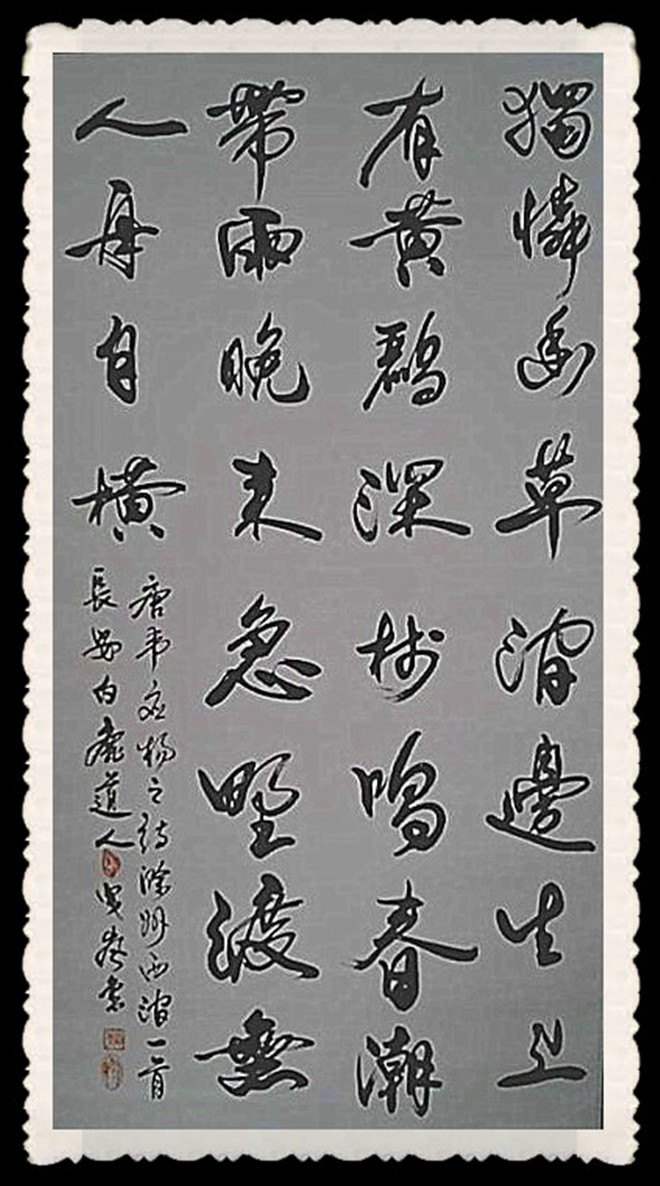 獨憐幽草澗邊生上
有黄鸝深樹鳴春潮
帶雨晚来急野渡無
人舟自橫
唐韦应物之詩滁州西澗一首
長安白鹿道人